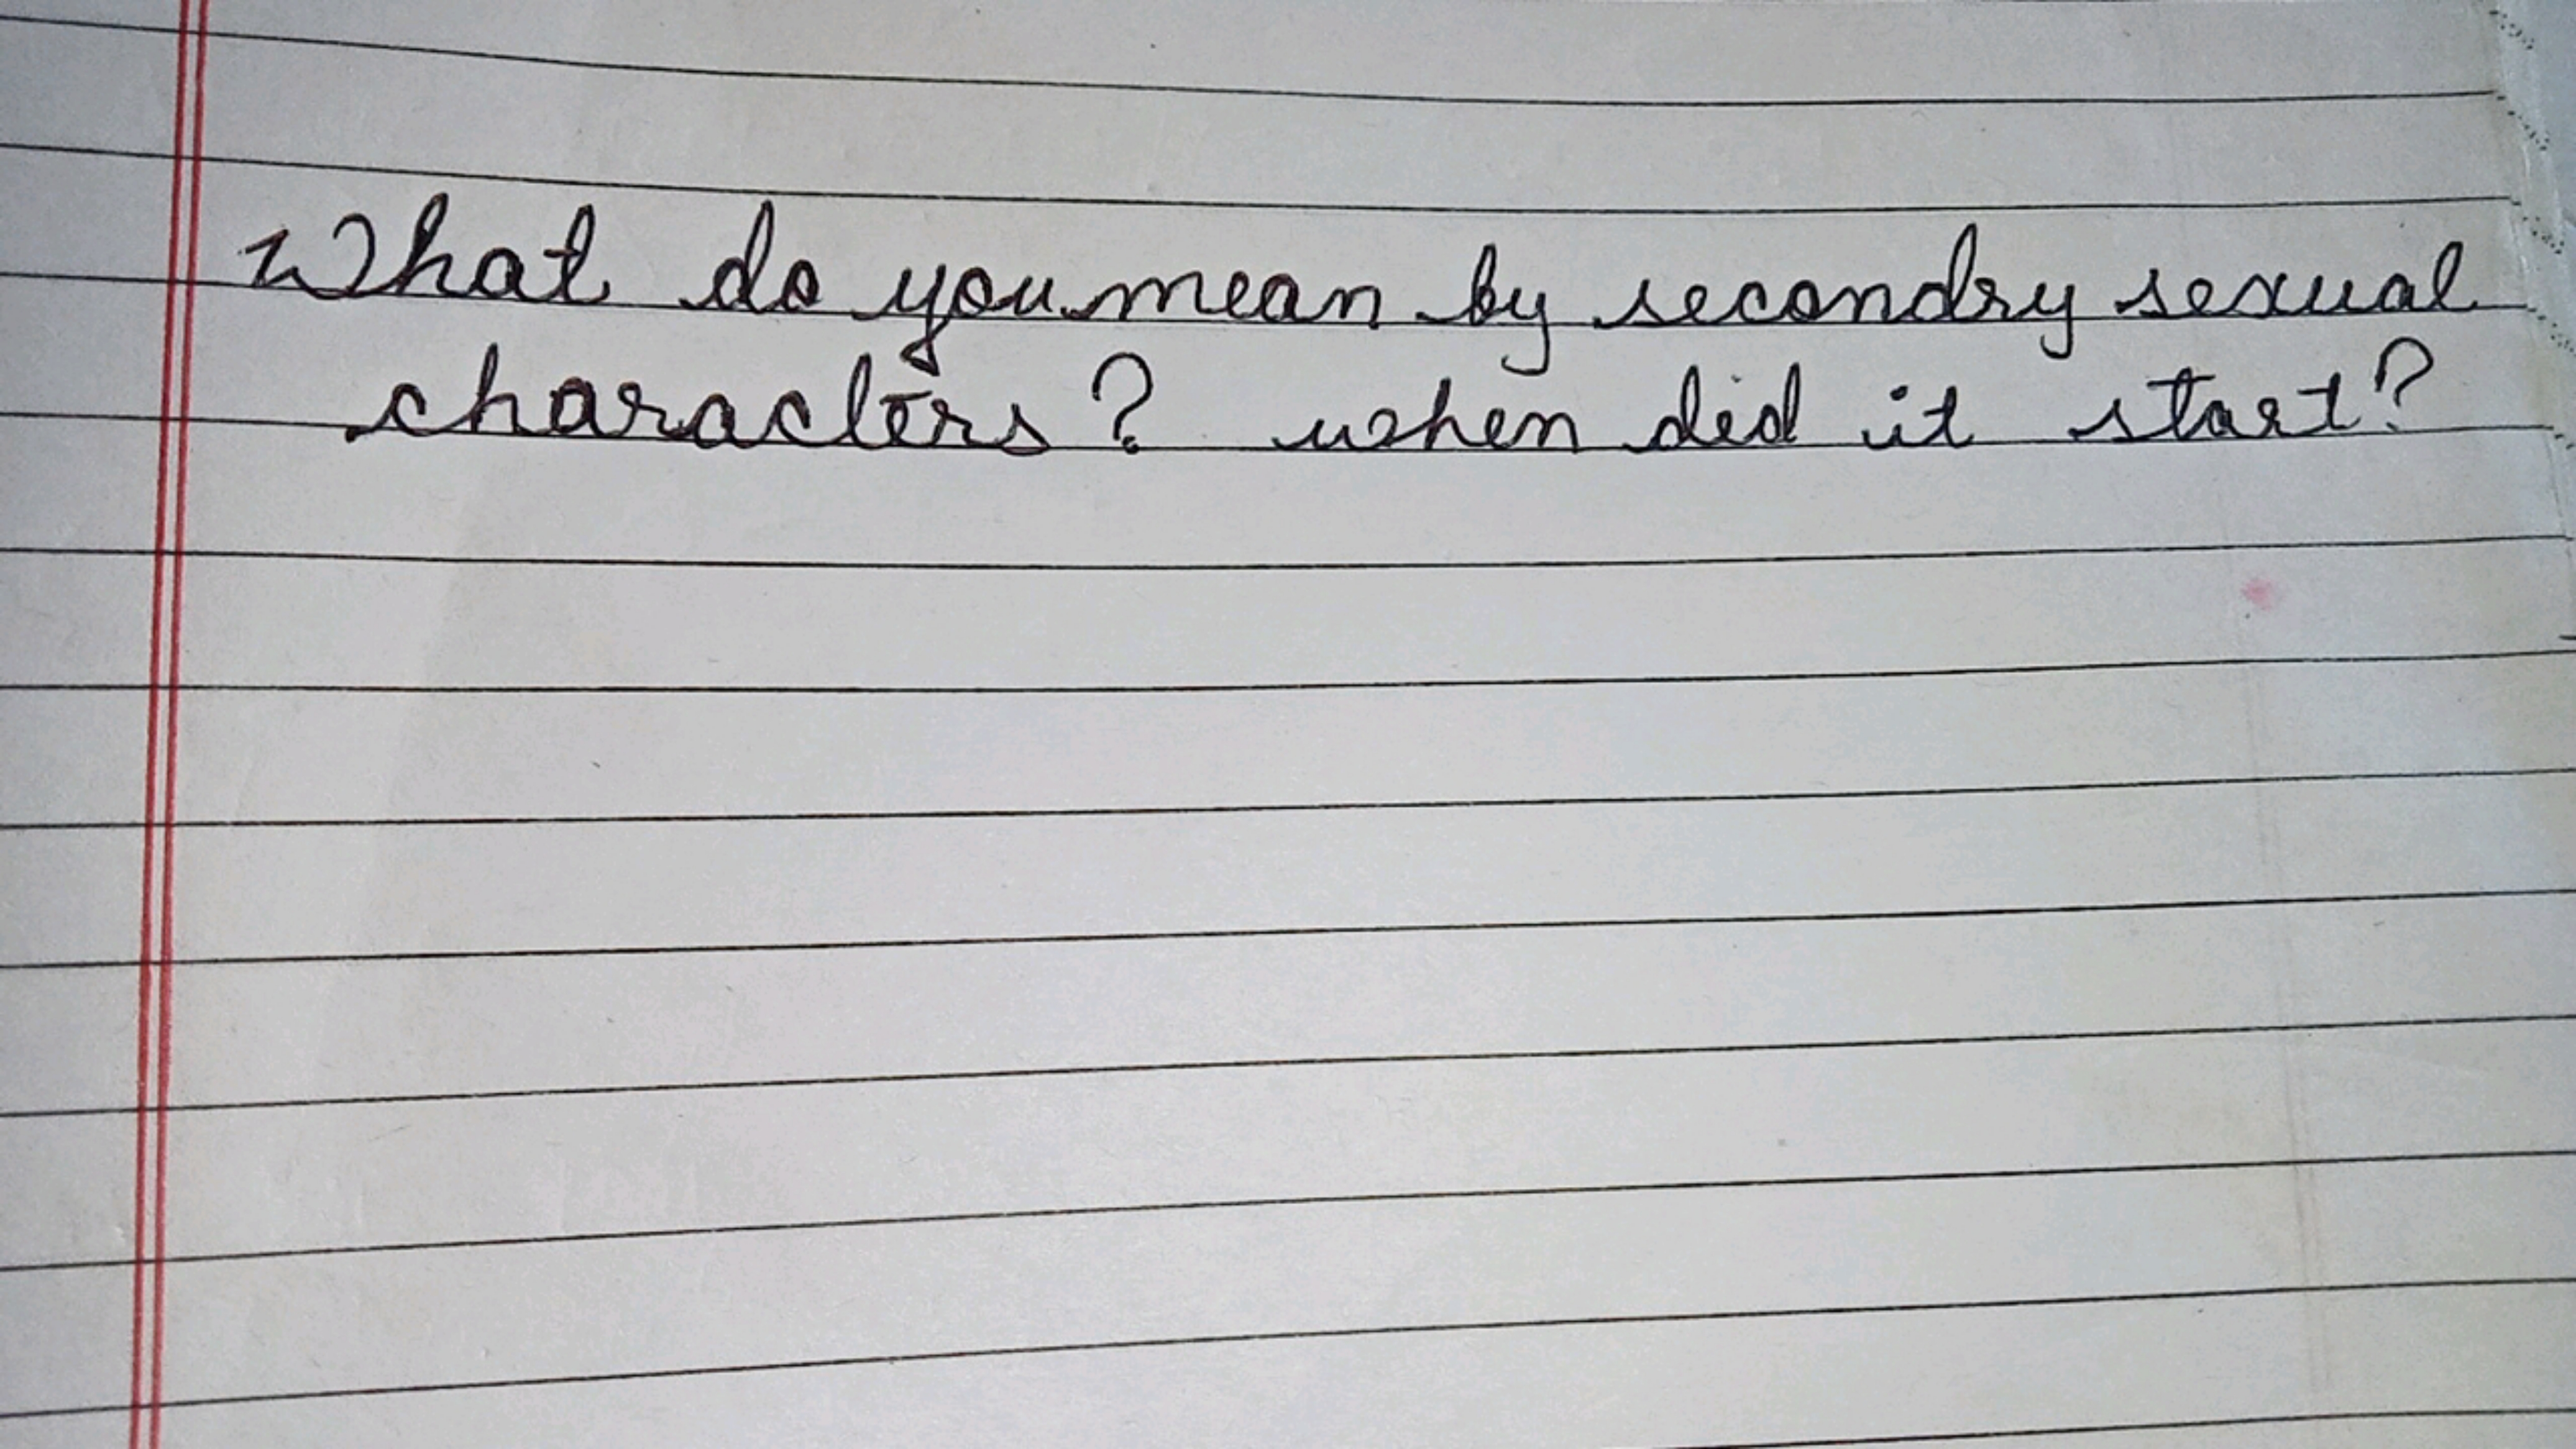 What do you mean by secondry sexual
characters? when did it start?